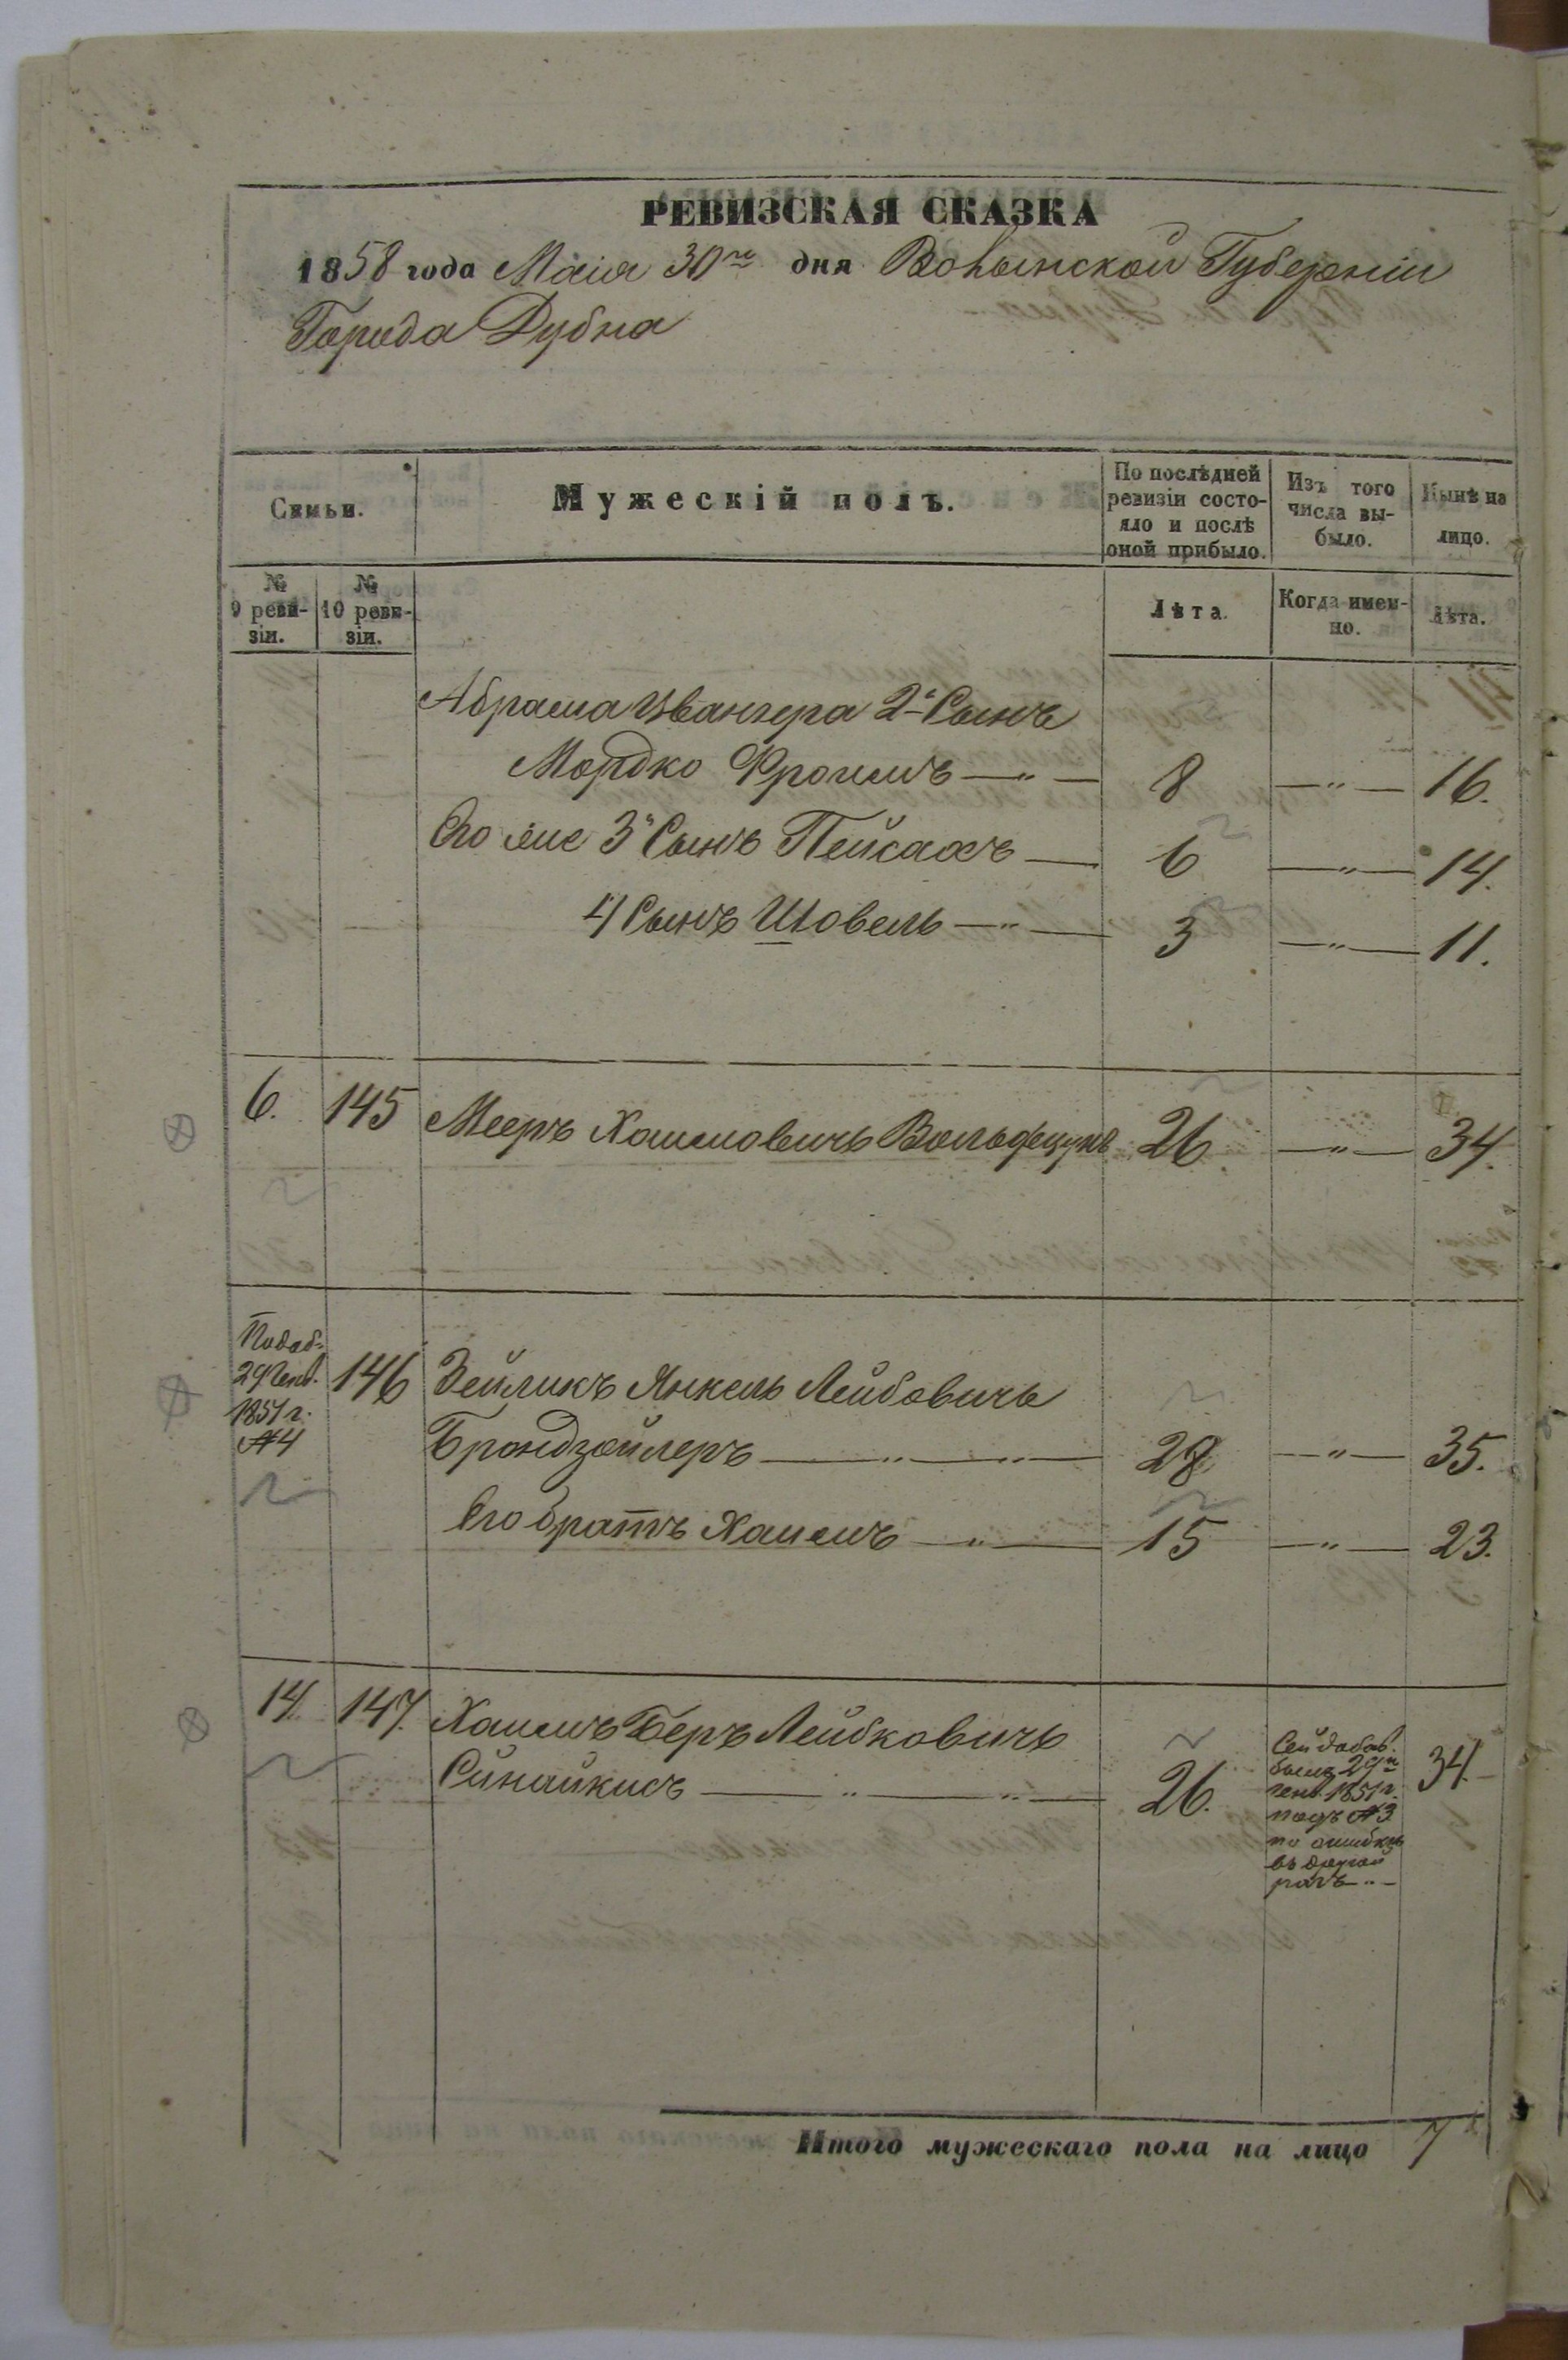 РЕВИЗСКАЯ СКАЗКА
1858 года Маія 30го дня Волынской Губерніи
Города Дубна
Семьи.
Мужескій полъ.
По послѣдней ревизіи состо-
яло и послѣ оной прибыло.
Изъ того числа вы-
было.
Нынѣ на лицо.
№ 9 реви-
зіи.
№ 10 реви-
зіи.
Лѣта.
Когда имен-
но.
Лѣта.
Абрама Цвангера 2й Сынъ
Мордко Фроимъ — " — 8 — " — 16.
Его же 3й Сынъ Пейсахъ — 6 — " — 14.
4 Сынъ Шовель — " — 3 — " — 11.
6. 145 Мееръ Хаимовичъ Вольфцунъ 26 — " — 34.
Подоб.
29 Генв.
1851 г.
№ 4
146 Зейликъ Янкель Лейбовичъ
Брондзойлеръ — " — " — 28 — " — 35.
Его братъ Хаимъ — " — 15 — " — 23.
14. 147. Хаимъ Беръ Лейбковичъ
Синайкисъ — " — " — 26. 34.
Сей добав.
былъ 29го
генв. 1851 г.
подъ № 3
по ошибкѣ
въ другой
разъ — " —
Итого мужескаго пола на лицо 7